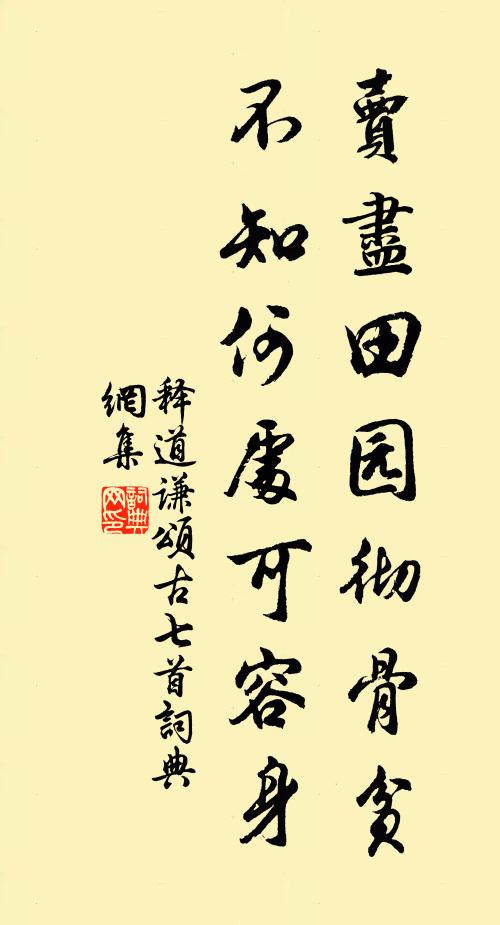 賣盡田园彻骨貧
不知何處可容身
释道谦頌古七首詞典
網集
詞典
网印